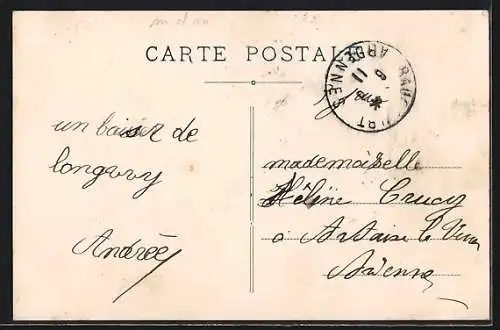 CARTE POSTALE
ARDENNES
un baiser de
longwy
Andrée
mademoiselle
Hélène Crucy
à Artaise le Vivier
Ardennes